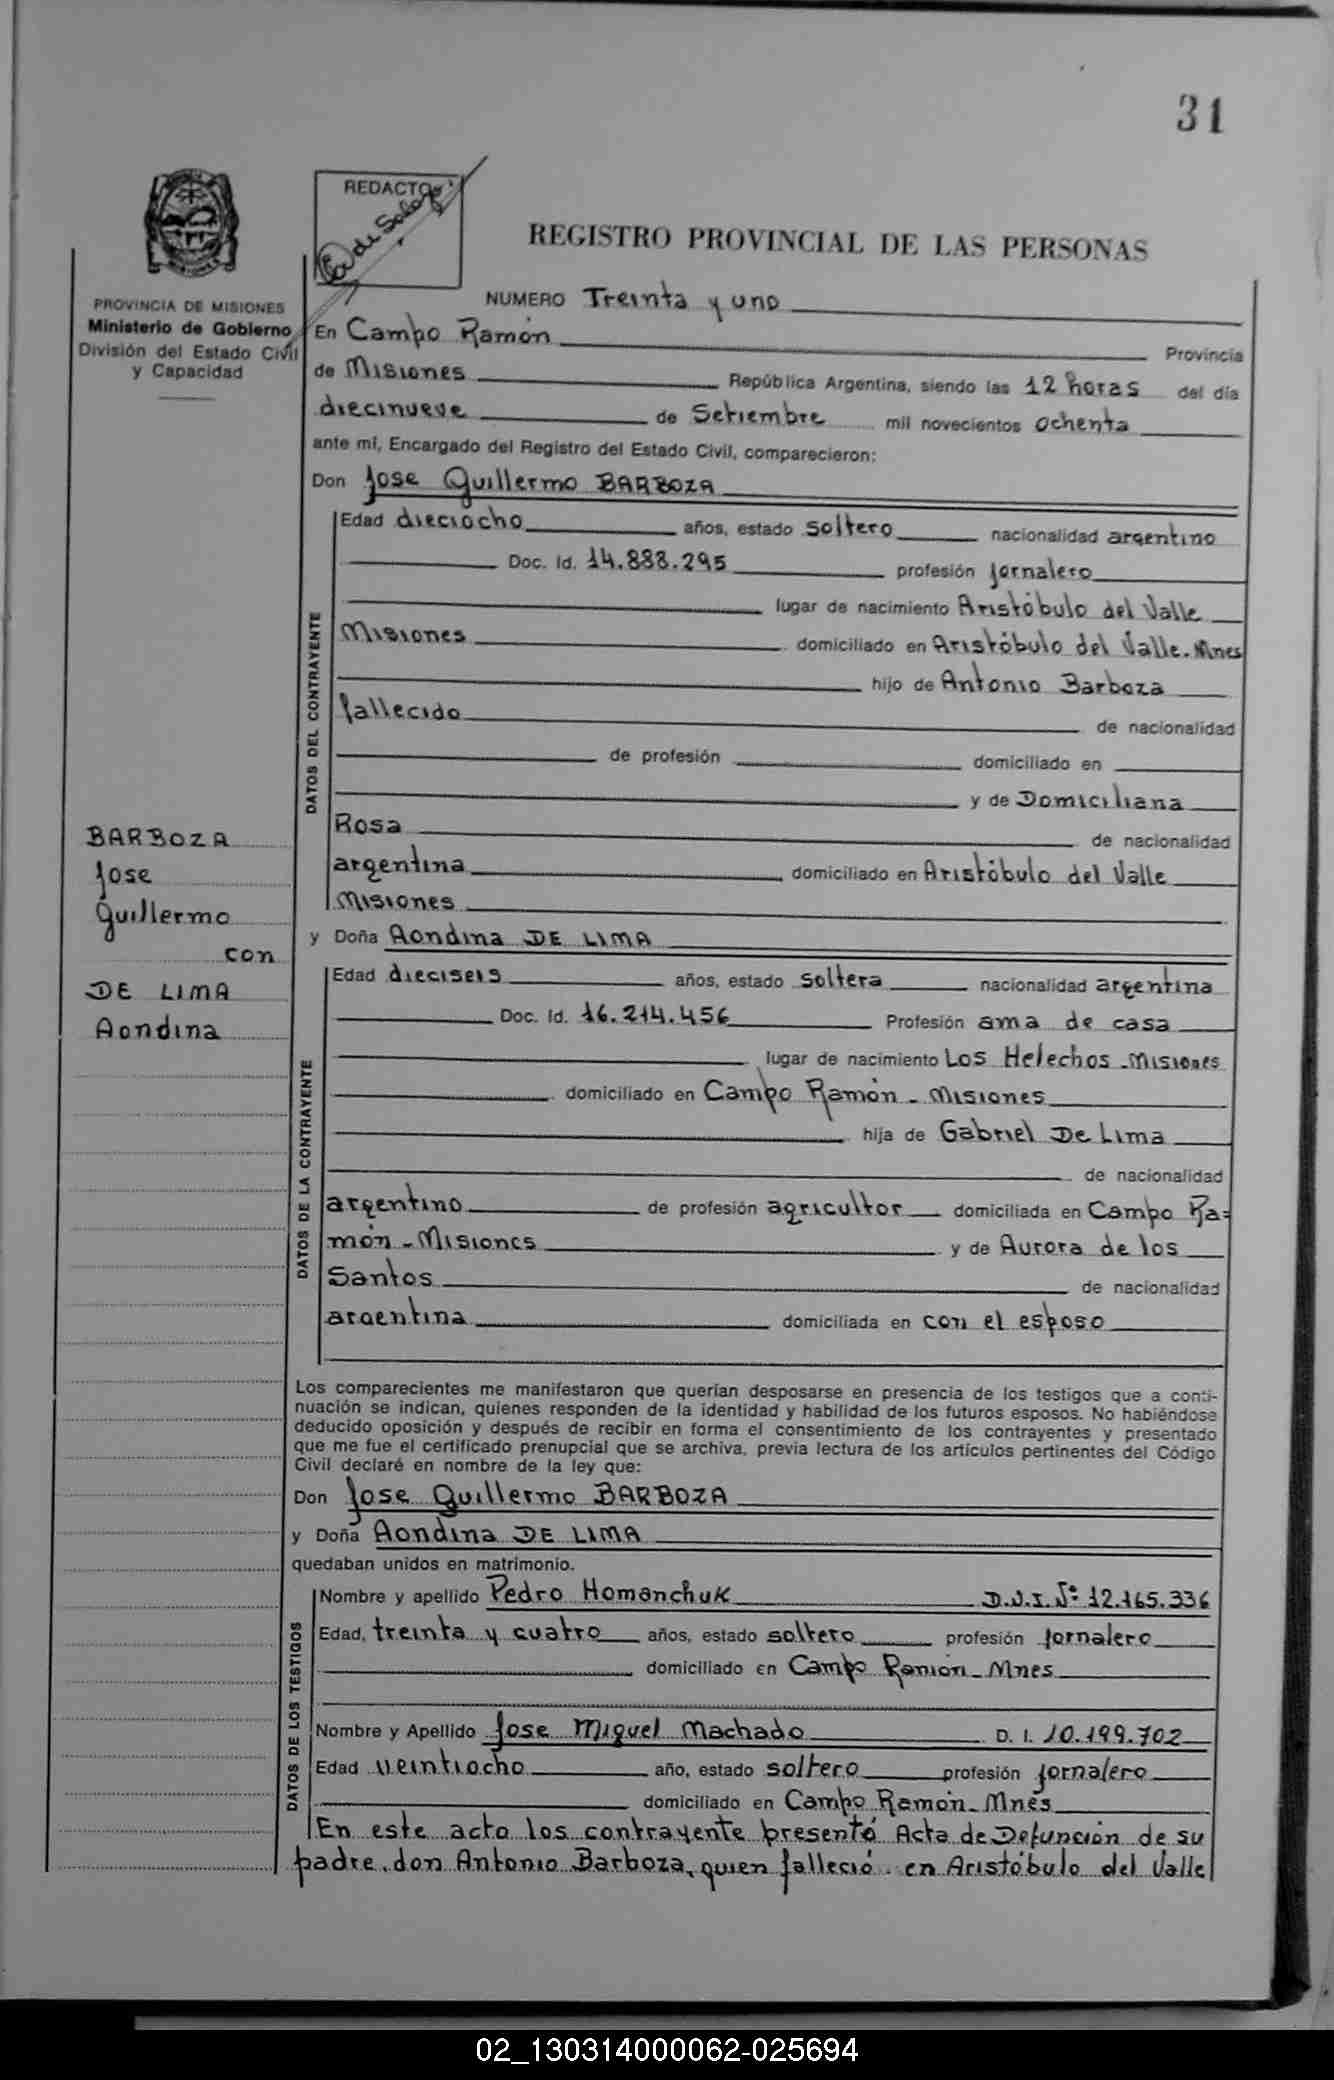 31
REDACTO
REGISTRO PROVINCIAL DE LAS PERSONAS
PROVINCIA DE MISIONES
Ministerio de Gobierno
División del Estado Civil
y Capacidad
NUMERO Treinta y uno
En Campo Ramón Provincia
de Misiones República Argentina, siendo las 12 horas del día
diecinueve de Setiembre mil novecientos ochenta
ante mí, Encargado del Registro del Estado Civil, comparecieron:
Don Jose Guillermo BARBOZA
DATOS DEL CONTRAYENTE
Edad dieciocho años, estado soltero nacionalidad argentino
Doc. Id. 14.888.295 profesión jornalero
lugar de nacimiento Aristóbulo del Valle
Misiones domiciliado en Aristóbulo del Valle. Mnes
hijo de Antonio Barboza
fallecido de nacionalidad
de profesión domiciliado en
y de Domiciliana
Rosa de nacionalidad
argentina domiciliado en Aristóbulo del Valle
Misiones
BARBOZA
Jose
Guillermo
con
DE LIMA
Aondina
y Doña Aondina DE LIMA
DATOS DE LA CONTRAYENTE
Edad dieciseis años, estado soltera nacionalidad argentina
Doc. Id. 16.214.456 Profesión ama de casa
lugar de nacimiento Los Helechos - Misiones
domiciliado en Campo Ramón - Misiones
hija de Gabriel De Lima
de nacionalidad
argentino de profesión agricultor domiciliada en Campo Ra=
món - Misiones y de Aurora de los
Santos de nacionalidad
argentina domiciliada en con el esposo
Los comparecientes me manifestaron que querían desposarse en presencia de los testigos que a conti-
nuación se indican, quienes responden de la identidad y habilidad de los futuros esposos. No habiéndose
deducido oposición y después de recibir en forma el consentimiento de los contrayentes y presentado
que me fue el certificado prenupcial que se archiva, previa lectura de los artículos pertinentes del Código
Civil declaré en nombre de la ley que:
Don Jose Guillermo BARBOZA
y Doña Aondina DE LIMA
quedaban unidos en matrimonio.
DATOS DE LOS TESTIGOS
Nombre y apellido Pedro Homanchuk D.N.I. Nº 12.165.336
Edad, treinta y cuatro años, estado soltero profesión jornalero
domiciliado en Campo Ramón - Mnes
Nombre y Apellido Jose Miguel Machado D. I. 10.199.702
Edad veintiocho año, estado soltero profesión jornalero
domiciliado en Campo Ramón - Mnes
En este acto los contrayente presentó Acta de Defunción de su
padre, don Antonio Barboza, quien falleció en Aristóbulo del Valle
02_130314000062-025694